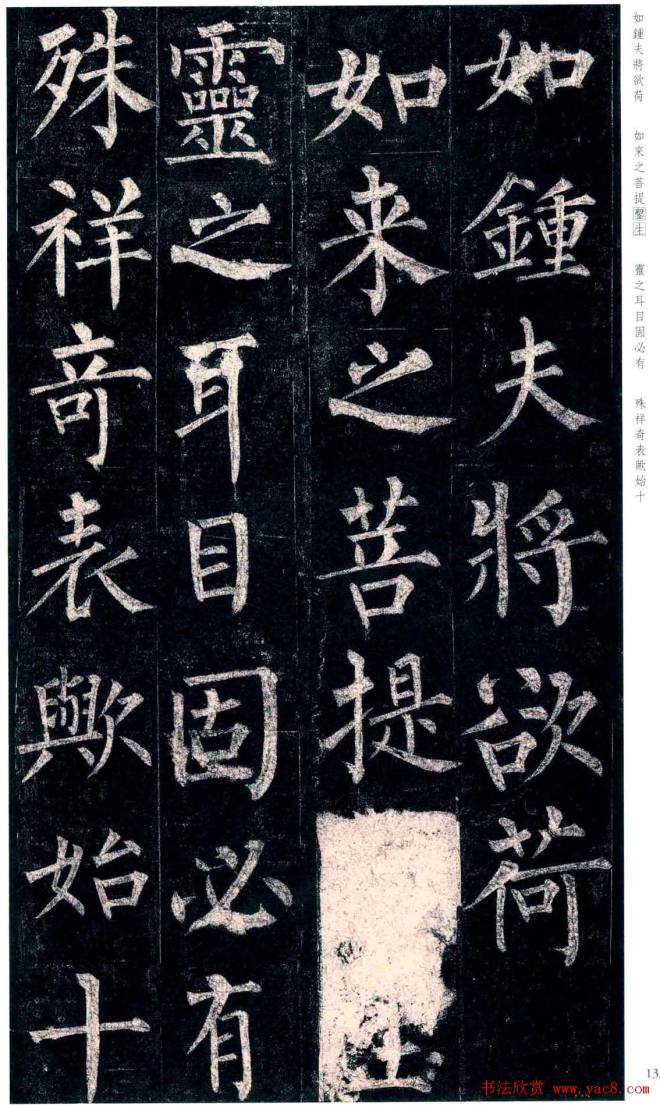 如鍾夫將欲荷
如来之菩提
靈之耳目固必有
殊祥竒表歟始十
如鍾夫將欲荷 如來之菩提鑿生 靈之耳目固必有 殊祥奇表歟始十
13
书法欣赏 www.yac8.com